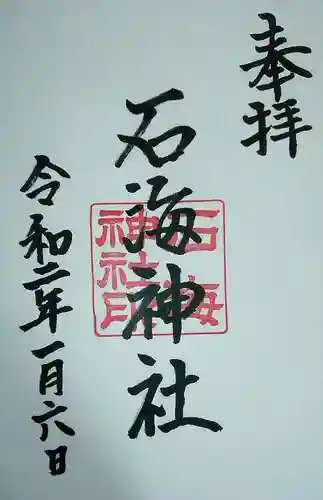 奉拝
石海神社
石海
神社印
令和二年一月六日